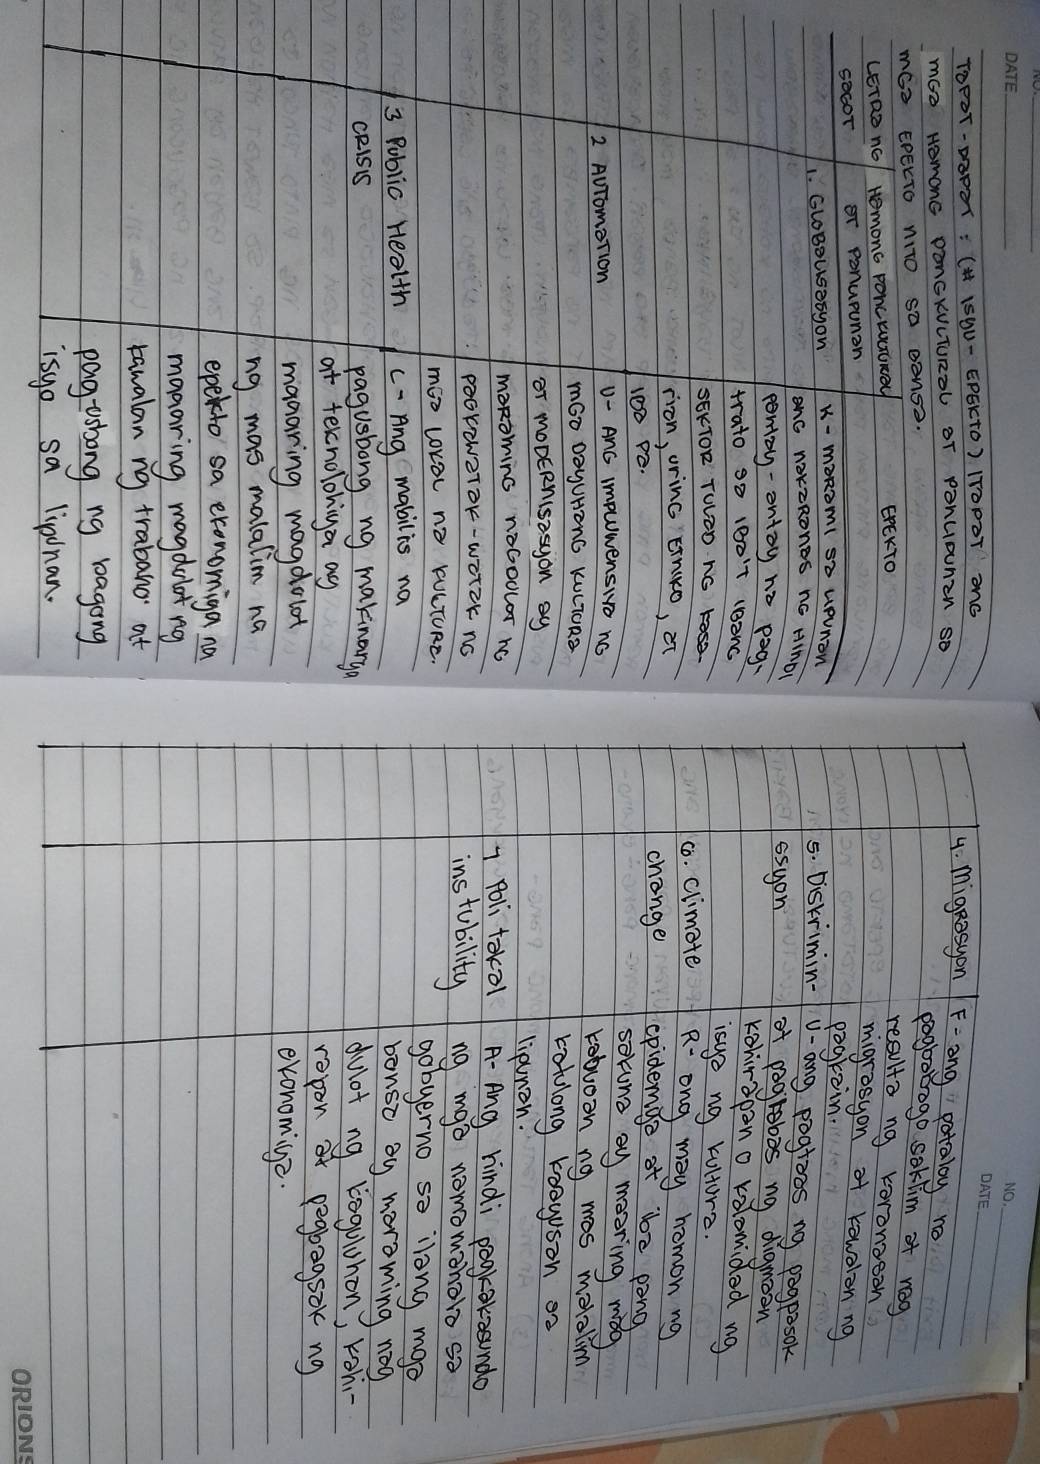 NO.
DATE
TAPAT-DAPAT: (# ISYU - EPEKTO) ITAPAT ANG
MGA HAMONG PANGKULTURAL AT PANLIPUNAN SA
MGA EPEKTO NITO SA BANSA.
LETRA NG SAGOT
HAMONG PANGKULTURAL AT PANLIPUNAN
EPEKTO
1. GLOBALISASYON
K - MARAMI SA LIPUNAN
ANG NAKARANAS NG HINDI
PANTAY-PANTAY NA PAG-
TRATO SA IBA'T IBANG
SEKTOR TULAD NG KASA-
RIAN, URING ETNIKO, AT
IBA PA.
2 AUTOMATION
U- ANG IMPLUWENSIYA NG
MGA DAYUHANG KULTURA
AT MODERNISASYON AY
MARAMING NAGDULOT NG
PAGKAWATAK-WATAK NG
MGA LOKAL NA KULTURA.
3 Public Health
CRISIS
L - Ang mabilis na
pagusbong ng makinarya
at teknolohiya ay
maaaring magdulot
ng mas malalim na
epekto sa ekonomiya na
maaaring magdulot ng
kawalan ng trabaho at
pag-usbong ng bagong
isyu sa lipunan.
NO.
DATE
4. Migrasyon
F = ang patuloy na
pagbabago saklim at nag
resulta ng karanasan
migrasyon at kawalan ng
pagkain.
5. Diskrimin-
asyon
U - ang pagtaas ng pagpasok
at paglabas ng digmaan
kahirapan o kalamidad ng
isyu ng kultura.
6. Climate
change
R - ang may hamon ng
epidemya at iba pang
sakuna ay maaring mag
ng mas malalim
katulong kaayusan sa
lipunan.
7 Politakal
instubility
A- Ang hindi pagkakasundo
ng mga namamahala sa
gobyerno sa ilang mga
bansa ay maraming nag
dulot ng kaguluhan, kahi-
rapan at pagbagsak ng
ekonomiya.
ORIONS